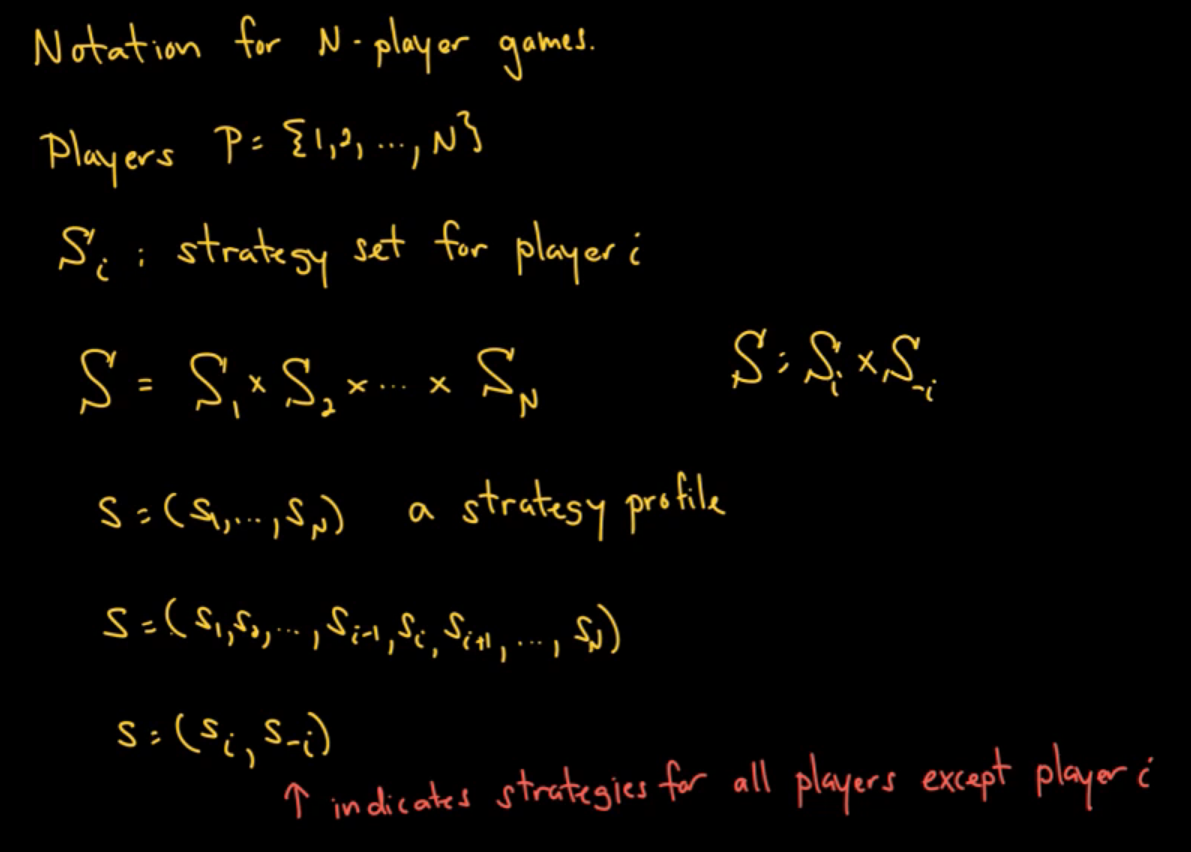 Notation for N-player games.
Players P = {1,2, ..., N}
Sᵢ : strategy set for player i
S = S₁ × S₂ × ... × S_N
S = Sᵢ × S₋ᵢ
s = (s₁, ..., s_N) a strategy profile
s = (s₁, s₂, ..., sᵢ₋₁, sᵢ, sᵢ₊₁, ..., s_N)
s = (sᵢ, s₋ᵢ)
↑ indicates strategies for all players except player i